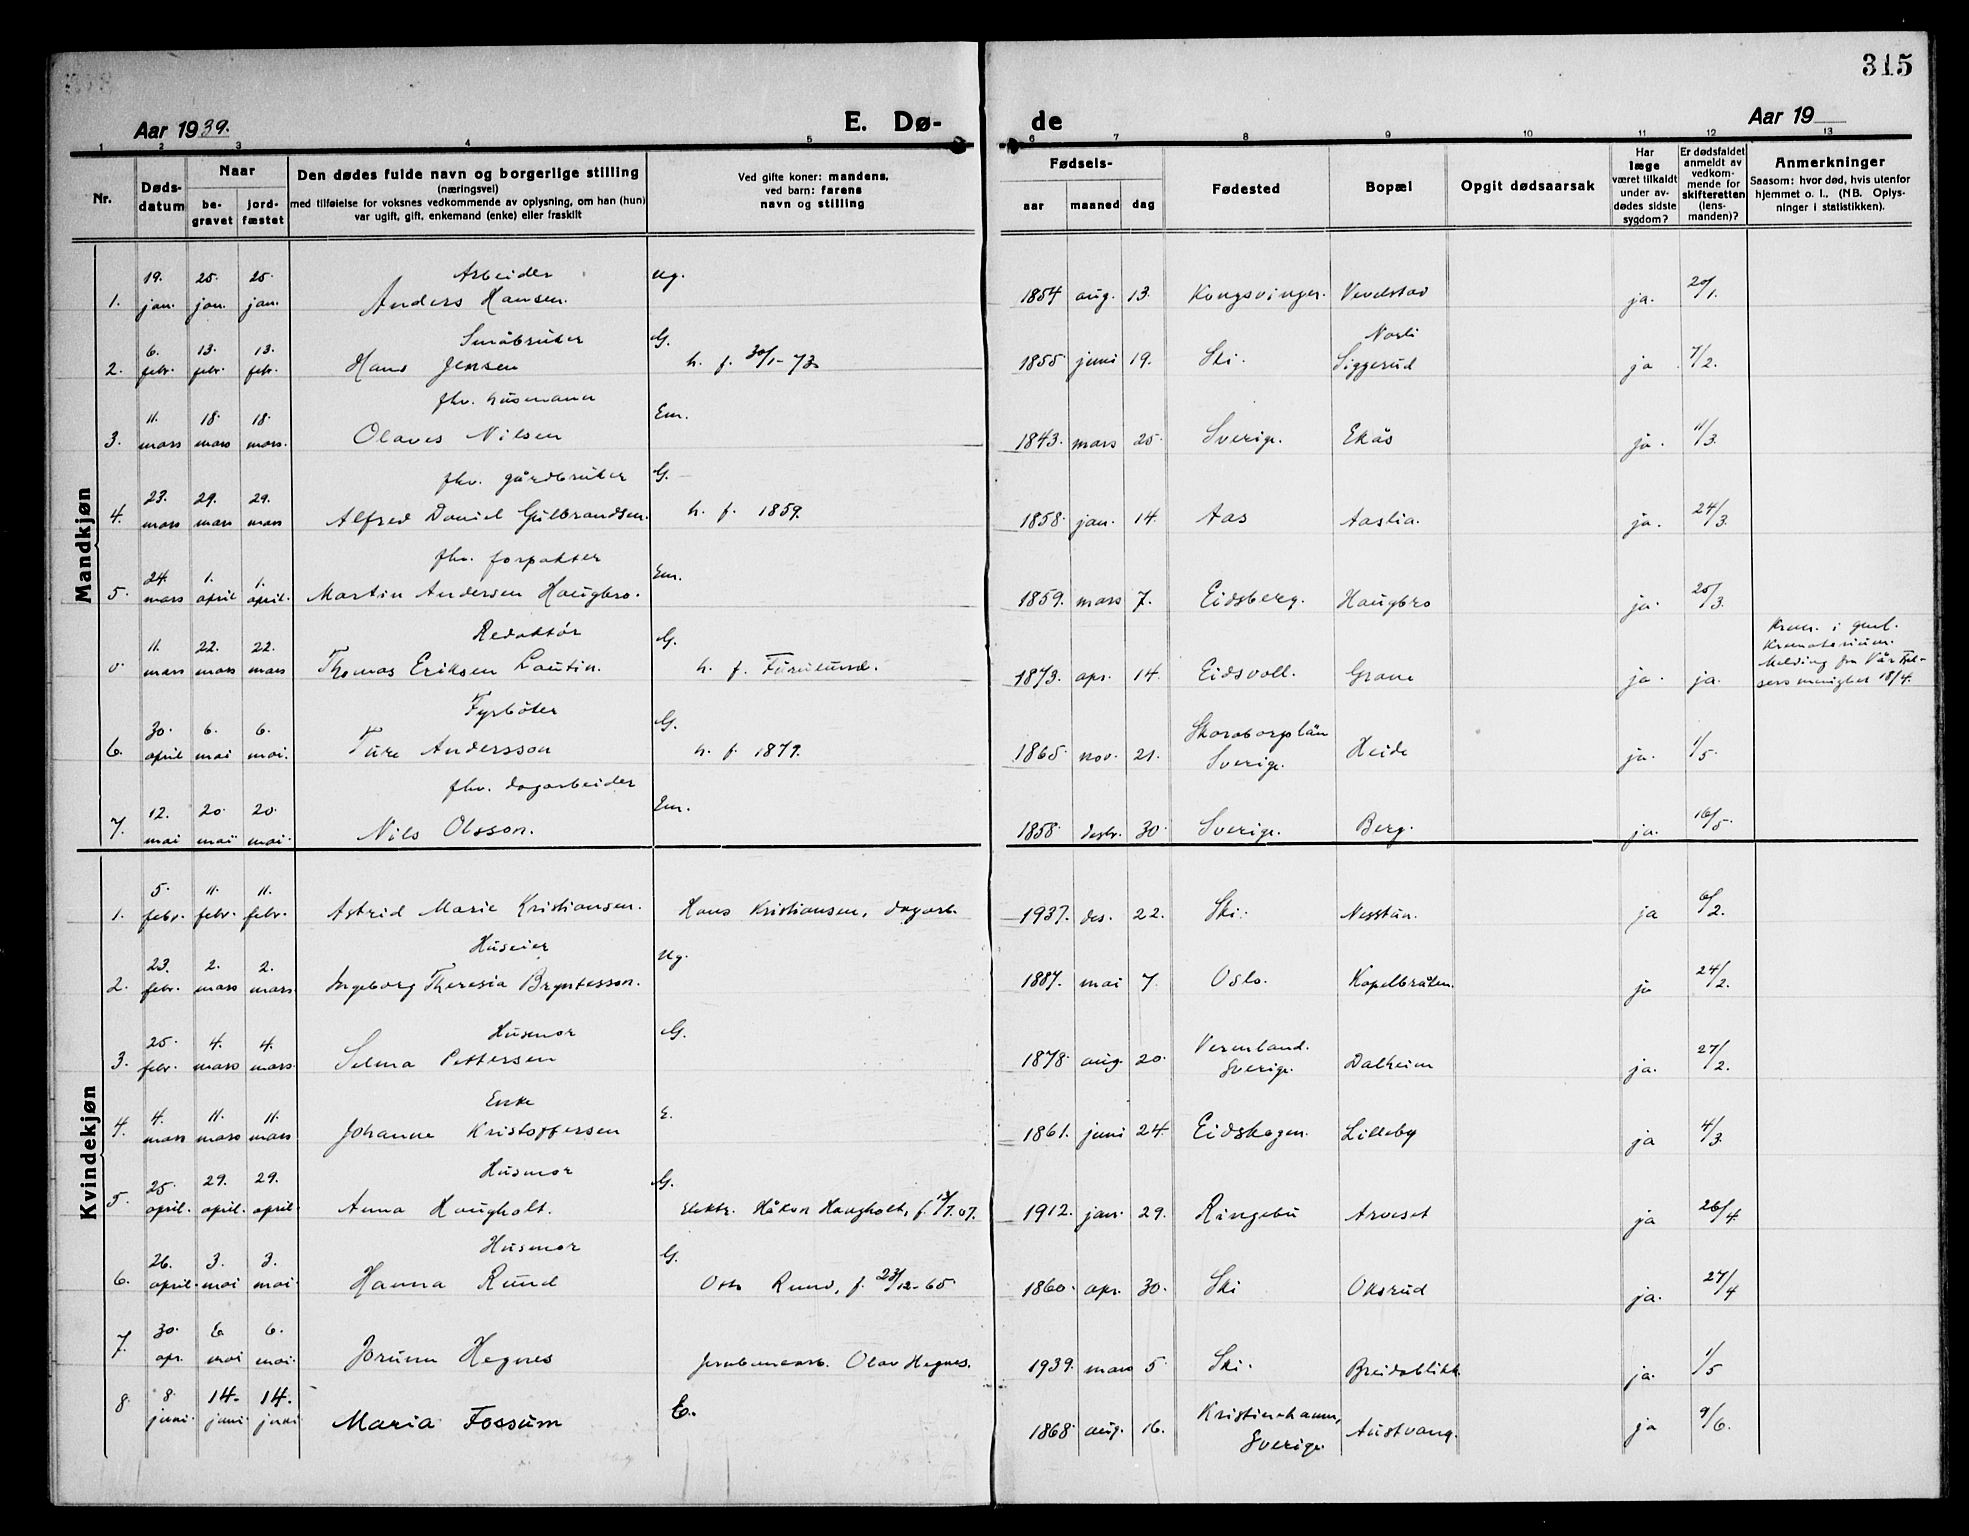 315
Aar 1939.
E. Dø-
de
Aar 19
1 2 3 4 5 6 7 8 9 10 11 12 13
Nr.
Døds-
datum
Naar
be-
gravet
jord-
fæstet
Den dødes fulde navn og borgerlige stilling
(næringsvei)
med tilføielse for voksnes vedkommende av oplysning, om han (hun)
var ugift, gift, enkemand (enke) eller fraskilt
Ved gifte koner: mandens,
ved barn: farens
navn og stilling
Fødsels-
aar maaned dag
Fødested
Bopæl
Opgit dødsaarsak
Har
læge
været tilkaldt
under av-
dødes sidste
sygdom?
Er dødsfaldet
anmeldt av
vedkom-
mende for
skifteretten
(lens-
manden)?
Anmerkninger
Saasom: hvor død, hvis utenfor
hjemmet o. l., (NB. Oplys-
ninger i statistikken).
Mandkjøn
19. 25. 25. Arbeider ug.
1. jan. jan. jan. Anders Hansen. 1854 aug. 13. Kongsvinger. Vevelstad ja. 20/1.
6. 13. 13. Småbruker G. Norli
2. febr. febr. febr. Hans Jensen h. f. 30/1-73 1855 juni 19. Ski. Siggerud ja 7/2.
11. 18 18. fhv. husmann Em.
3. mars mars mars. Olaves Nilsen 1843. mars 25. Sverige. Ekås ja. 11/3.
23. 29. 29. fhv. gårdbruker G.
4. mars mars mars Alfred Daniel Gulbrandsen. h. f. 1859. 1858. jan. 14. Aas Aaslia. ja. 24/3.
24. 1. 1. fhv. forpakter Em.
5. mars april april. Martin Andersen Haugbro. 1859. mars 7. Eidsberg. Haugbro ja. 25/3.
11. 22. 22. Redaktør G.
0. mars mars mars Thomas Eriksen Lautin. h. f. Furulund. 1873. apr. 14. Eidsvoll. Grane ja. ja.
Krem. i
Krematorium.
Melding fra Vår Frel-
sers menighet 18/4.
30. 6. 6. Fyrbøter G.
6. april mai mai. Ture Andersson h. f. 1879. 1865. nov. 21. Skaraborgslän
Sverige. Heide ja. 1/5.
12. 20. 20. fhv. dagarbeider Em.
7. mai mai mai. Nils Olsson. 1858. desbr. 30. Sverige. Berg. ja. 16/5.
Kvindekjøn
5. 11. 11.
1. febr. febr. febr. Astrid Marie Kristiansen. Hans Kristiansen, dagarb. 1937. des. 22. Ski. Nesstun. ja 6/2.
23. 2. 2. Huseier ug.
2. febr. mars mars. Ingeborg Theresia Bryntesson. 1887. mai 7. Oslo. Kapelbråten. ja 24/2.
25. 4. 4. Husmor G.
3. febr. mars mars. Selma Pettersen 1878. aug. 20. Vermland.
Sverige. Dalheim ja. 27/2.
4. 11. 11. Enke E.
4. mars mars mars Johanne Kristoffersen 1861. juni 24. Eidskogen. Lilleby ja 4/3.
25. 29. 29. Husmor G.
5. april. april. april. Anna Haugholt. Elektr. Håkon Haugholt, f. 07. 1912. jan. 29. Ringebu Arveset ja 26/4.
26. 3. 3. Husmor G.
6. april. mai mai. Hanna Rund Otto Rund, f. 23/12-65. 1860. apr. 30. Ski Oksrud ja. 27/4
30. 6 6.
7. apr. mai mai. Jorunn Hegnes Jernbanearb. Olav Hegnes. 1939. mars 5. Ski. Breidablikk. ja. 1/5
8. 14. 14.
8. juni. juni juni Maria Fossum E. 1868. aug. 16. Kristinehamn,
Sverige. Austvang. ja 9/6.